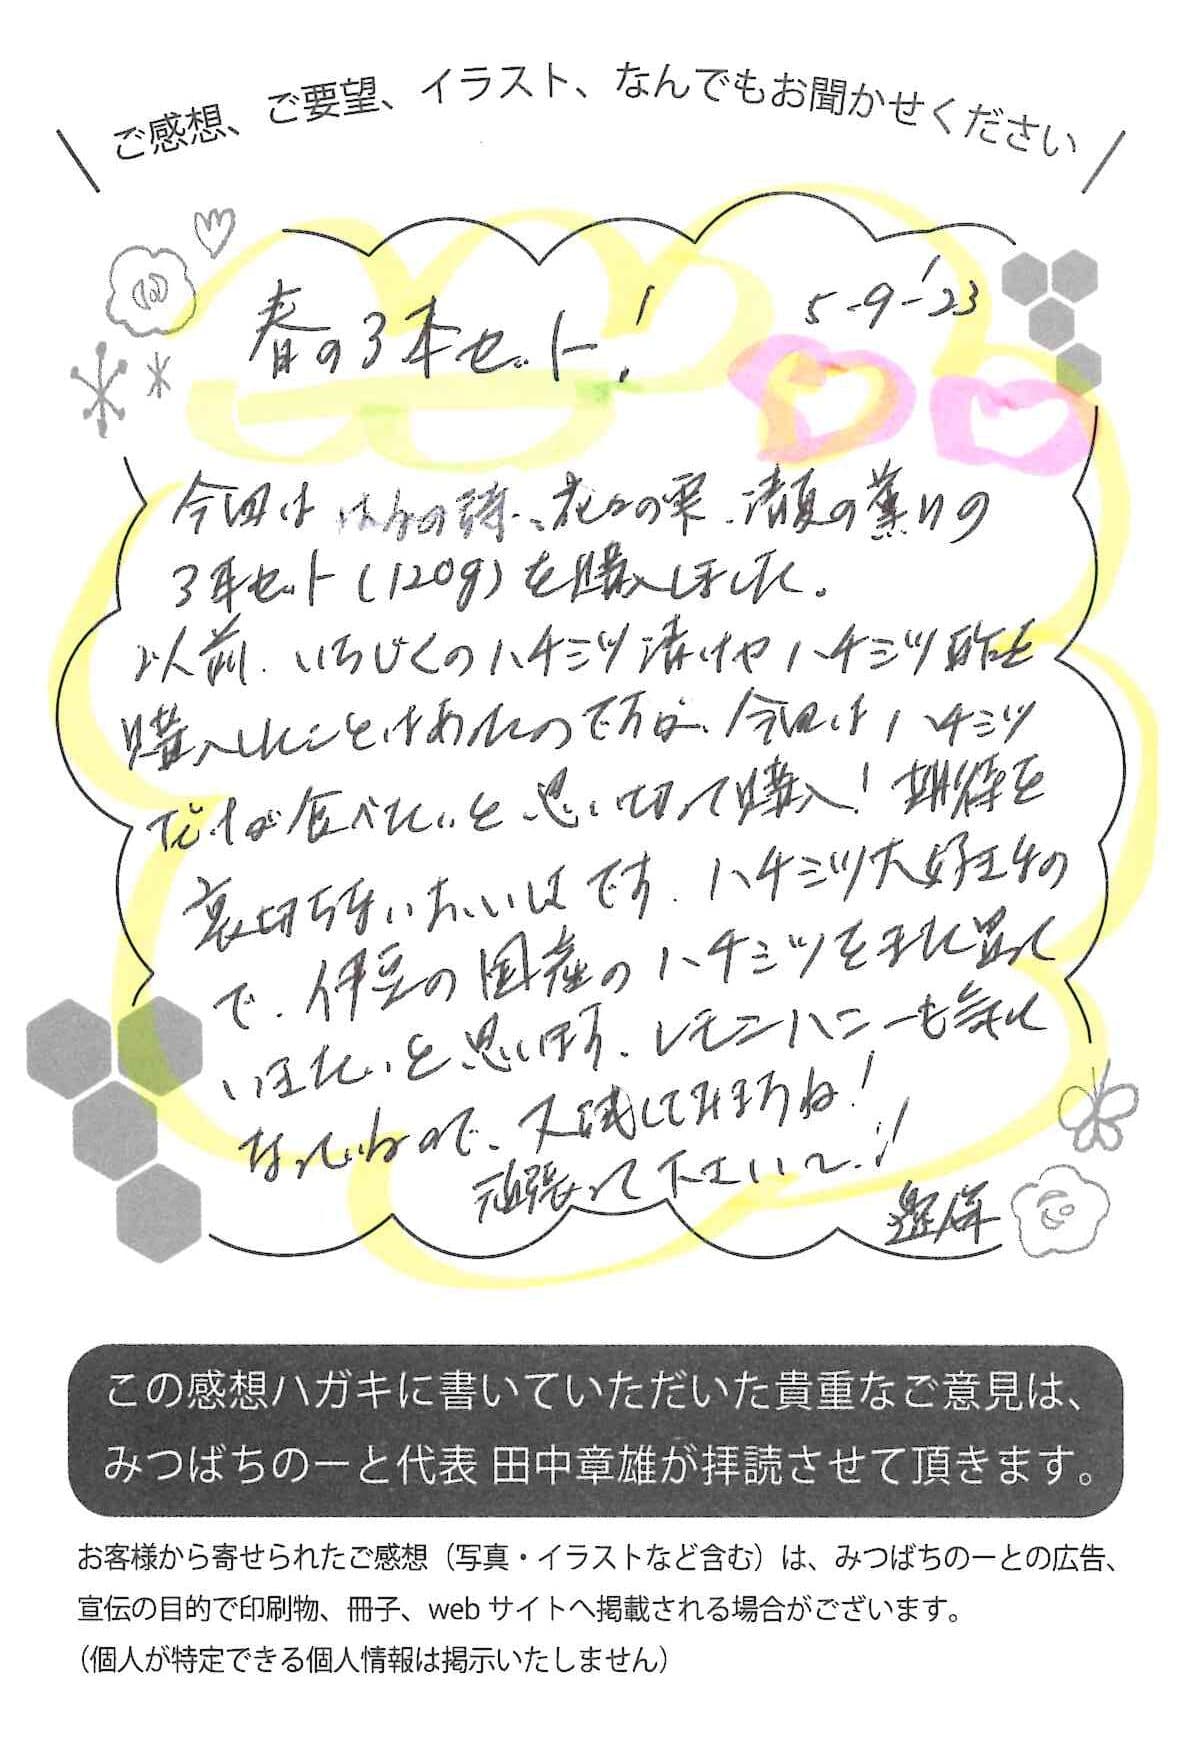 ご感想、ご要望、イラスト、なんでもお聞かせください
5-9-'23
春の3本セット!
今回は はなの詩、花々の雫、清夏の薫りの
3本セット(120g)を購入しました。
以前、いちじくのハチミツ漬けやハチミツ酢を
購入したことはあったのですが、今回はハチミツ
だけが食べたいと思い切って購入!期待を
裏切らないおいしさです。ハチミツ大好きなの
で、伊豆の国産のハチミツをまた買って
いきたいと思います。レモンハニーも気に
なっているので、又試してみますね!
頑張って下さい〜!!
この感想ハガキに書いていただいた貴重なご意見は、
みつばちのーと代表 田中章雄が拝読させて頂きます。
お客様から寄せられたご感想(写真・イラストなど含む)は、みつばちのーとの広告、
宣伝の目的で印刷物、冊子、web サイトへ掲載される場合がございます。
(個人が特定できる個人情報は掲示いたしません)